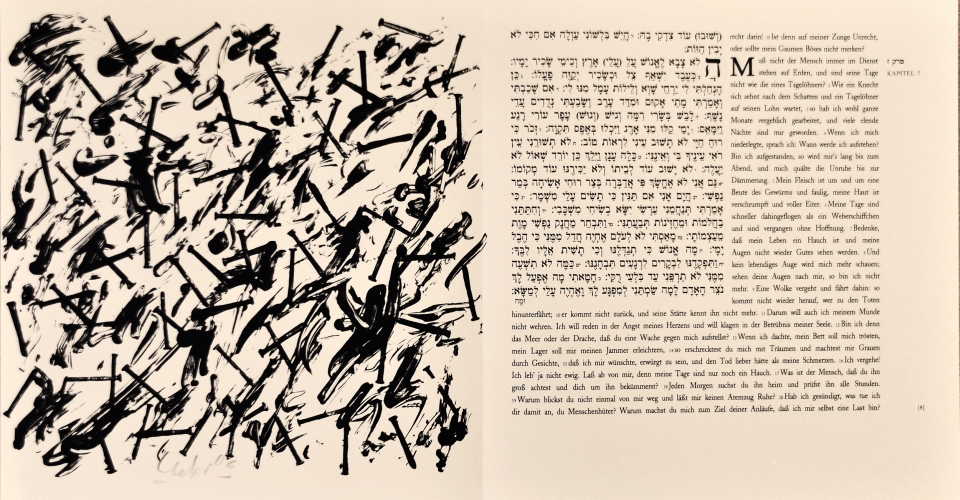 (וְשׁוּבוּ) עוֹד צִדְקִי בָהּ: הֲיֵשׁ בִּלְשׁוֹנִי עַוְלָה אִם חִכִּי לֹא
יָבִין הַוּוֹת:
הֲלֹא צָבָא לֶאֱנוֹשׁ עַל (עֲלֵי) אָרֶץ וְכִימֵי שָׂכִיר יָמָיו:
כְּעֶבֶד יִשְׁאַף צֵל וּכְשָׂכִיר יְקַוֶּה פָעֳלוֹ: כֵּן
הָנְחַלְתִּי לִי יַרְחֵי שָׁוְא וְלֵילוֹת עָמָל מִנּוּ לִי: אִם שָׁכַבְתִּי
וְאָמַרְתִּי מָתַי אָקוּם וּמִדַּד עָרֶב וְשָׂבַעְתִּי נְדֻדִים עֲדֵי
נָשֶׁף: לָבַשׁ בְּשָׂרִי רִמָּה וְגִישׁ (וְגוּשׁ) עָפָר עוֹרִי רָגַע
וַיִּמָּאֵס: יָמַי קַלּוּ מִנִּי אָרֶג וַיִּכְלוּ בְּאֶפֶס תִּקְוָה: זְכֹר כִּי
רוּחַ חַיָּי לֹא תָשׁוּב עֵינִי לִרְאוֹת טוֹב: לֹא תְשׁוּרֵנִי עֵין
רֹאִי עֵינֶיךָ בִּי וְאֵינֶנִּי: כָּלָה עָנָן וַיֵּלַךְ כֵּן יוֹרֵד שְׁאוֹל לֹא
יַעֲלֶה: לֹא יָשׁוּב עוֹד לְבֵיתוֹ וְלֹא יַכִּירֶנּוּ עוֹד מְקוֹמוֹ:
גַּם אֲנִי לֹא אֶחֱשָׂךְ פִּי אֲדַבְּרָה בְּצַר רוּחִי אָשִׂיחָה בְּמַר
נַפְשִׁי: הֲיָם אָנִי אִם תַּנִּין כִּי תָשִׂים עָלַי מִשְׁמָר: כִּי
אָמַרְתִּי תְּנַחֲמֵנִי עַרְשִׂי יִשָּׂא בְשִׂיחִי מִשְׁכָּבִי: וְחִתַּתַּנִי
בַחֲלֹמוֹת וּמֵחֶזְיֹנוֹת תְּבַעֲתַנִּי: וַתִּבְחַר מַחֲנָק נַפְשִׁי מָוֶת
מֵעַצְמוֹתָי: מָאַסְתִּי לֹא לְעֹלָם אֶחְיֶה חֲדַל מִמֶּנִּי כִּי הֶבֶל
יָמָי: מָה אֱנוֹשׁ כִּי תְגַדְּלֶנּוּ וְכִי תָשִׁית אֵלָיו לִבֶּךָ:
וַתִּפְקְדֶנּוּ לִבְקָרִים לִרְגָעִים תִּבְחָנֶנּוּ: כַּמָּה לֹא תִשְׁעֶה
מִמֶּנִּי לֹא תַרְפֵּנִי עַד בִּלְעִי רֻקִּי: חָטָאתִי מָה אֶפְעַל לָךְ
נֹצֵר הָאָדָם לָמָה שַׂמְתַּנִי לְמִפְגָּע לָךְ וָאֶהְיֶה עָלַי לְמַשָּׂא:
וּמֶה
recht darin! 30 Ist denn auf meiner Zunge Unrecht,
oder sollte mein Gaumen Böses nicht merken?
פרק ז
KAPITEL 7
Muß nicht der Mensch immer im Dienst
stehen auf Erden, und sind seine Tage
nicht wie die eines Tagelöhners? 2 Wie ein Knecht
sich sehnt nach dem Schatten und ein Tagelöhner
auf seinen Lohn wartet, 3 so hab ich wohl ganze
Monate vergeblich gearbeitet, und viele elende
Nächte sind mir geworden. 4 Wenn ich mich
niederlegte, sprach ich: Wann werde ich aufstehen?
Bin ich aufgestanden, so wird mir's lang bis zum
Abend, und mich quälte die Unruhe bis zur
Dämmerung. 5 Mein Fleisch ist um und um eine
Beute des Gewürms und faulig, meine Haut ist
verschrumpft und voller Eiter. 6 Meine Tage sind
schneller dahingeflogen als ein Weberschiffchen
und sind vergangen ohne Hoffnung. 7 Bedenke,
daß mein Leben ein Hauch ist und meine
Augen nicht wieder Gutes sehen werden. 8 Und
kein lebendiges Auge wird mich mehr schauen;
sehen deine Augen nach mir, so bin ich nicht
mehr. 9 Eine Wolke vergeht und fährt dahin: so
kommt nicht wieder herauf, wer zu den Toten
hinunterfährt; 10 er kommt nicht zurück, und seine Stätte kennt ihn nicht mehr. 11 Darum will auch ich meinem Munde
nicht wehren. Ich will reden in der Angst meines Herzens und will klagen in der Betrübnis meiner Seele. 12 Bin ich denn
das Meer oder der Drache, daß du eine Wache gegen mich aufstellst? 13 Wenn ich dachte, mein Bett soll mich trösten,
mein Lager soll mir meinen Jammer erleichtern, 14 so erschrecktest du mich mit Träumen und machtest mir Grauen
durch Gesichte, 15 daß ich mir wünschte, erwürgt zu sein, und den Tod lieber hätte als meine Schmerzen. 16 Ich vergehe!
Ich leb' ja nicht ewig. Laß ab von mir, denn meine Tage sind nur noch ein Hauch. 17 Was ist der Mensch, daß du ihn
groß achtest und dich um ihn bekümmerst? 18 Jeden Morgen suchst du ihn heim und prüfst ihn alle Stunden.
19 Warum blickst du nicht einmal von mir weg und läßt mir keinen Atemzug Ruhe? 20 Hab ich gesündigt, was tue ich
dir damit an, du Menschenhüter? Warum machst du mich zum Ziel deiner Anläufe, daß ich mir selbst eine Last bin?
[8]